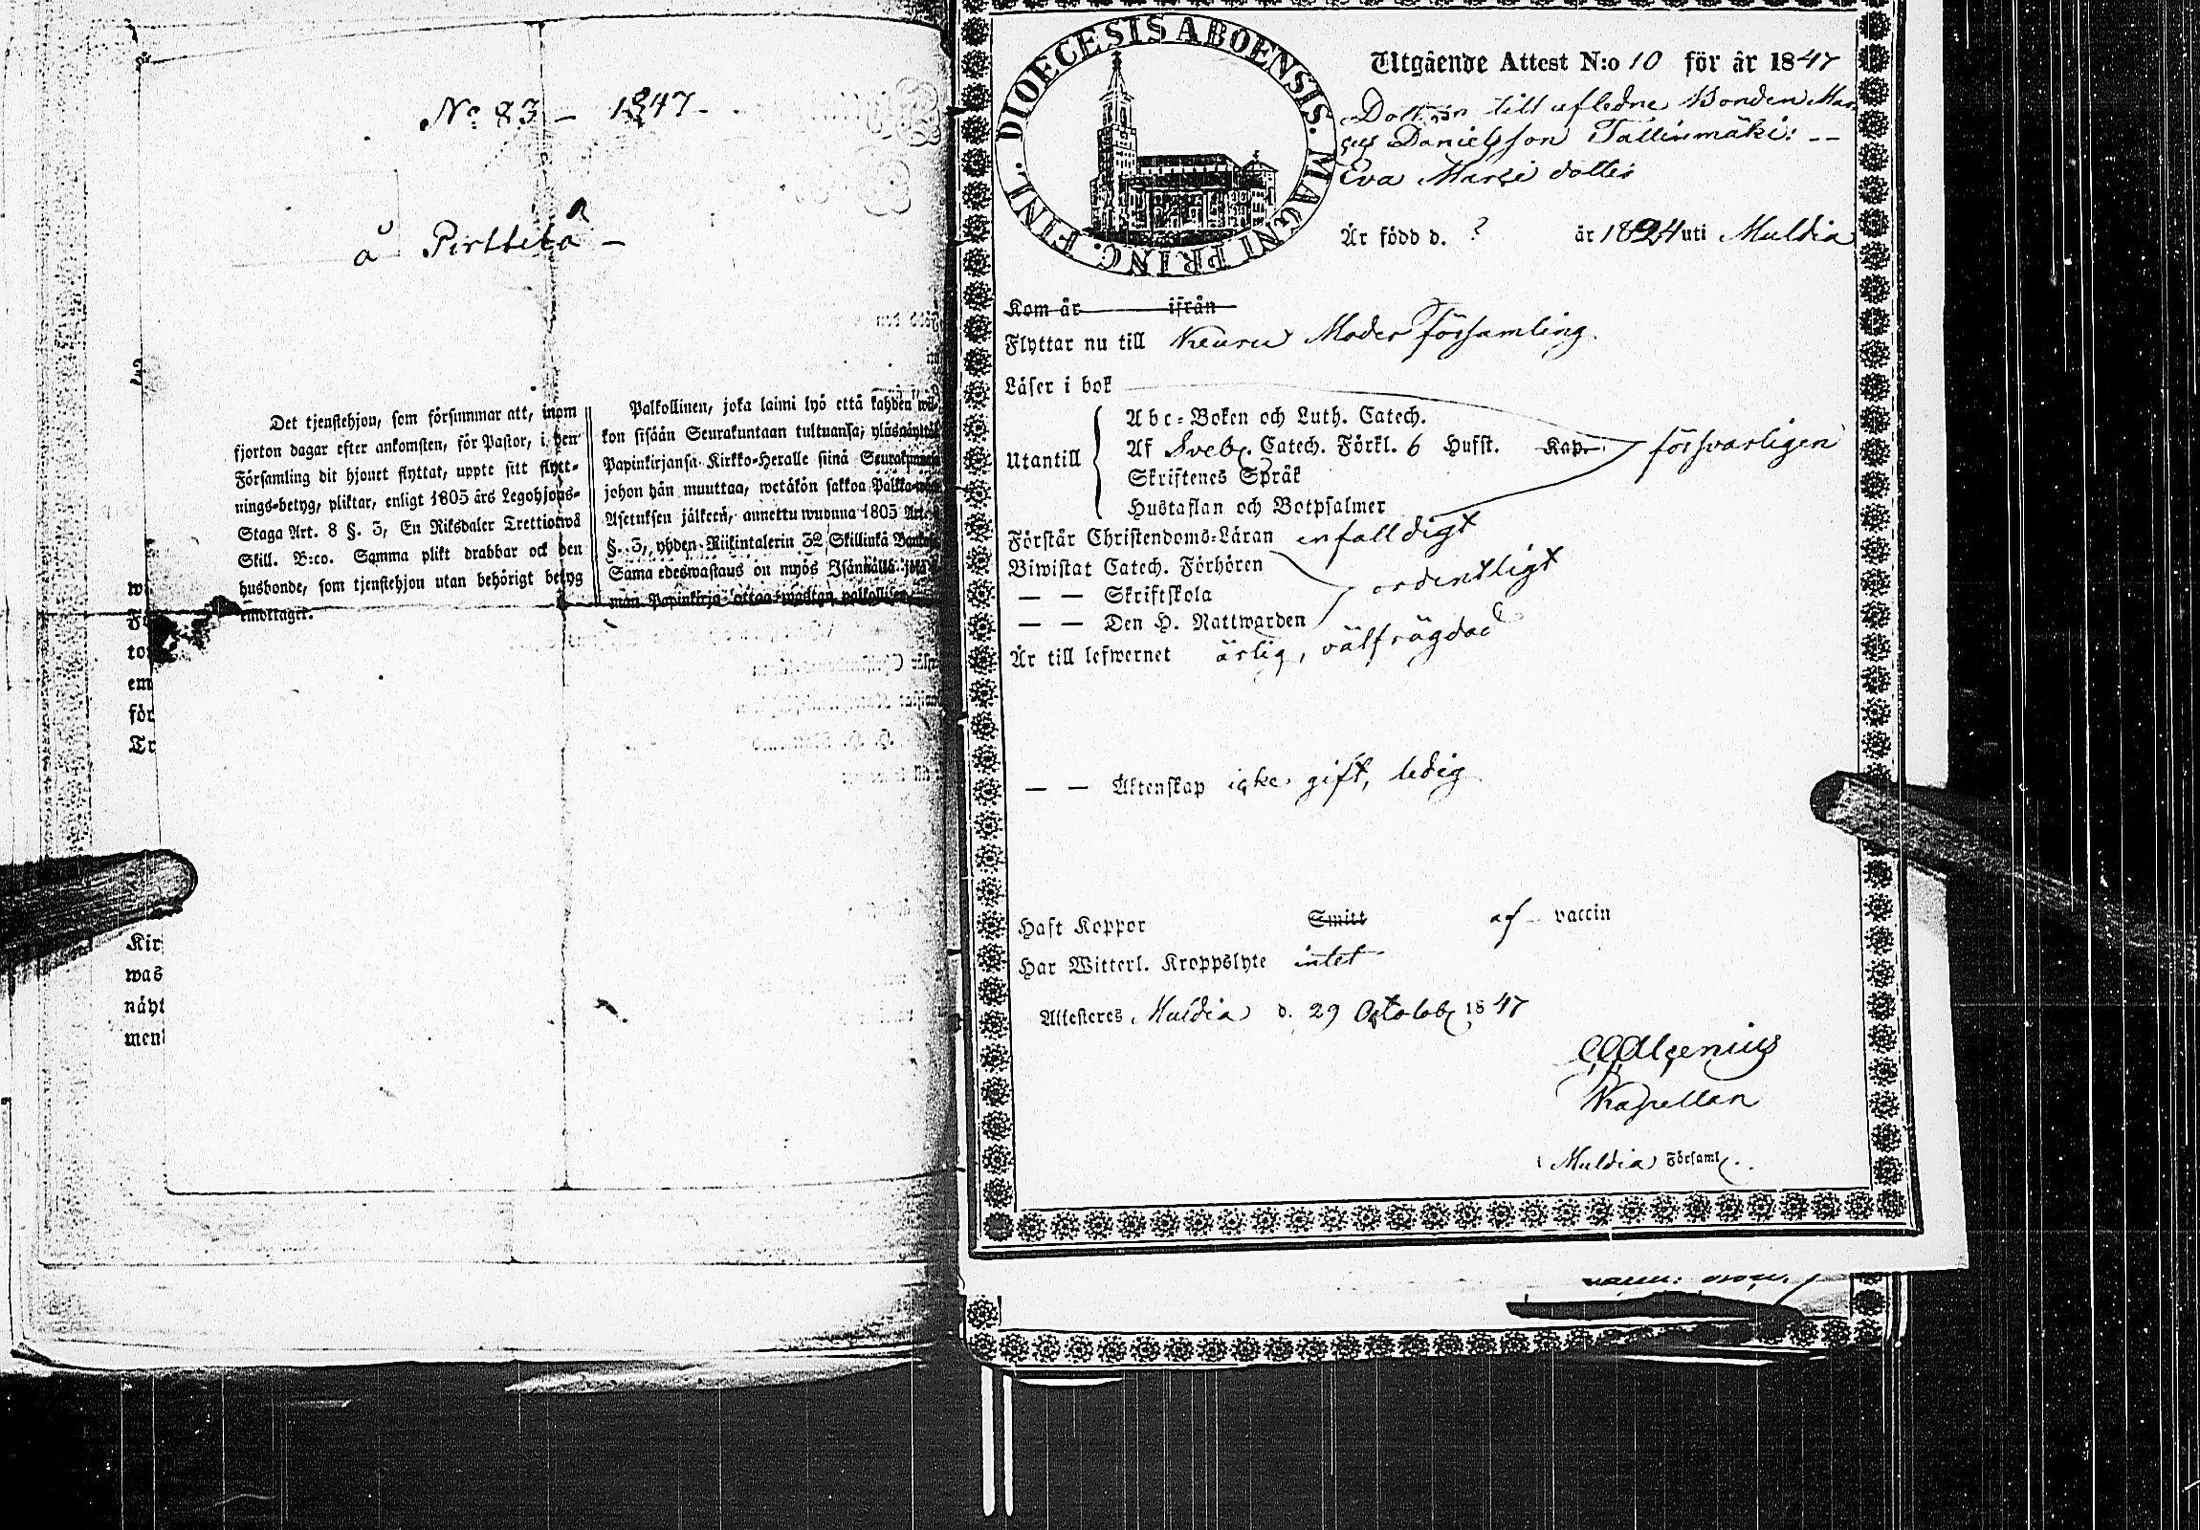 No 83 – 1847 –
å Pirttilä –
Det tjenstehjon, som försummar att, inom
fjorton dagar efter ankomsten, för Pastor, i den
Församling dit hjonet flyttat, uppte sitt flytt-
nings-betyg, pliktar, enligt 1805 års Legohjons-
Staga Art. 8 §. 3, En Riksdaler Trettiotwå
Skill. B:co. Samma plikt drabbar ock den
husbonde, som tjenstehjon utan behörigt betyg
emottaget.
Palkollinen, joka laimi lyö että kahden wii-
kon sisään Seurakuntaan tultuansa, ylösnäyttää
Papinkirjansa Kirkko-Heralle siinä Seurakunnassa
johon hän muuttaa, wetäkön sakkoa Palkka-
Asetuksen jälkeen, annettu wuonna 1805 Art.
§. 3, yhden Riikintalerin 32 Skillinkä Banko
Sama edeswastaus on myös Isännällä joka
man Papinkirja ottaa wastan palkollisen
w
F
to
em
för
Tr
Kir
was
näyt
men
DIOECESIS ABOENSIS. MAGNI PRINC. FINL.
Utgående Attest N:o 10 för år 1847
Dottren till afledne Bonden Mar
cus Danielsson Tallinmäki: --
Eva Maria dotter
Är född d. ? år 1824 uti Muldia
Kom år ifrån
Flyttar nu till Keuru Moder församling.
Läser i bok
Utantill
Abc-Boken och Luth. Catech.
Af Sveb. Catech. Förkl. 6 Hufst. Kap. försvarligen
Skriftenes Språk
Hustaflan och Botpsalmer
Förstår Christendoms-Läran enfalldigt
Biwistat Catech. Förhören
— — Skriftskola ordentligt
— — Den H. Nattwarden
Är till lefwernet ärlig, välfrägdad
— — Äktenskap icke gift, ledig
Haft Koppor Smitt af vaccin
Har Witterl. Kroppslyte intet
Attesteres Muldia d. 29 October 1847
Algenius
Kapellan
i Muldia Församl.